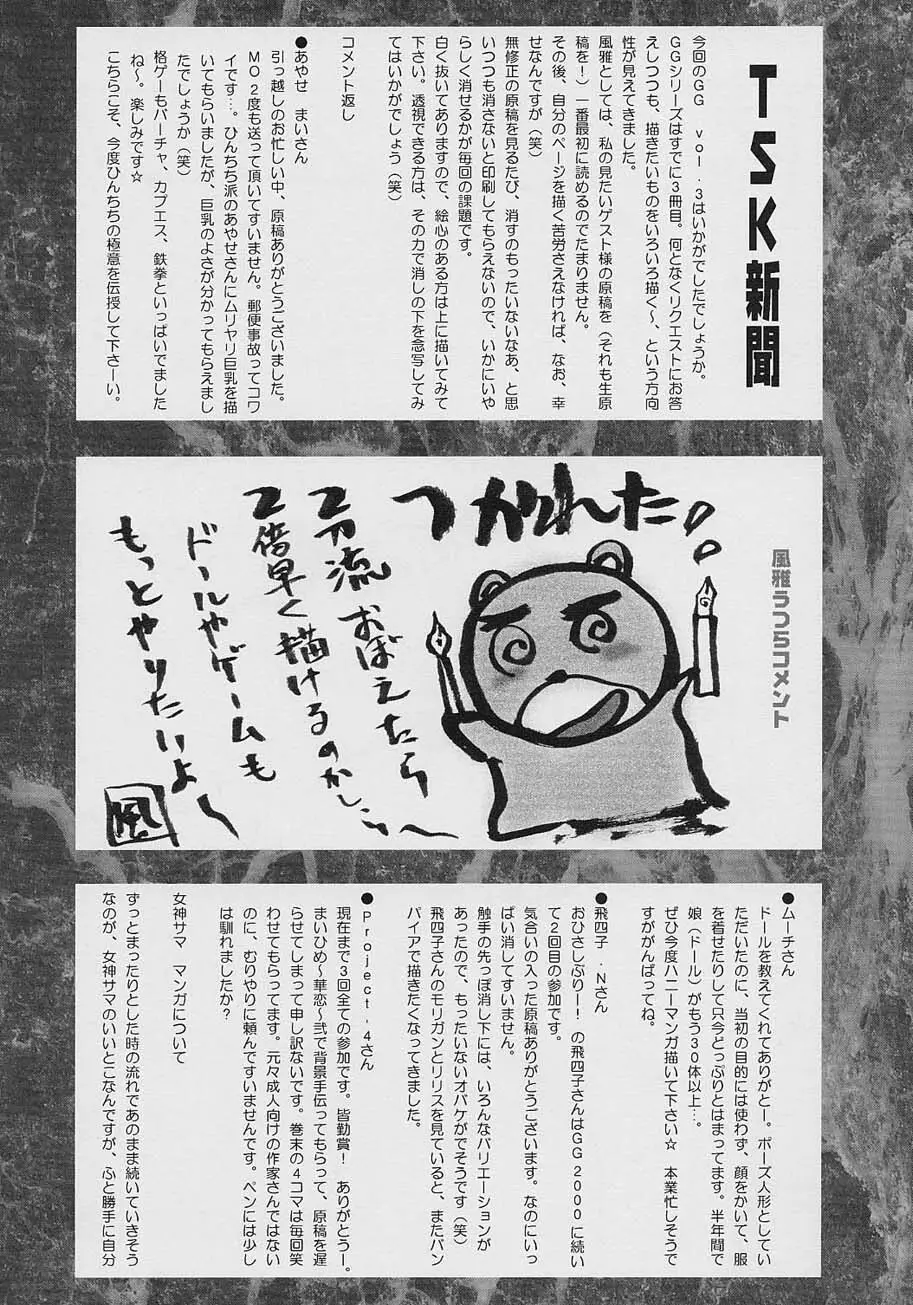 TSK新聞
今回のGG vol.3はいかがでしたでしょうか。
GGシリーズはすでに3冊目。何となくリクエストにお答
えしつつも、描きたいものをいろいろ描く〜、という方向
性が見えてきました。
風雅としては、私の見たいゲスト様の原稿を（それも生原
稿を！）一番最初に読めるのでたまりません。
その後、自分のページを描く苦労さえなければ、なお、幸
せなんですが（笑）
無修正の原稿を見るたび、消すのもったいないなあ、と思
いつつも消さないと印刷してもらえないので、いかにいや
らしく消せるかが毎回の課題です。
白く抜いてありますので、絵心のある方は上に描いてみて
下さい。透視できる方は、その力で消しの下を念写してみ
てはいかがでしょう（笑）
コメント返し
●あやせ まいさん
引っ越しのお忙しい中、原稿ありがとうございました。
MO2度も送って頂いてすいません。郵便事故ってコワ
イです…。ひんちち派のあやせさんにムリヤリ巨乳を描
いてもらいましたが、巨乳のよさが分かってもらえまし
たでしょうか（笑）
格ゲーもバーチャ、カプエス、鉄拳といっぱいでました
ね〜。楽しみです☆
こちらこそ、今度ひんちちの極意を伝授して下さーい。
風雅うつらコメント
つかれた
2刀流おぼえたら
2倍早く描けるのかしら〜
ドールやゲームも
もっとやりたいよ〜
風
●ムーチさん
ドールを教えてくれてありがとー。ポーズ人形としてい
ただいたのに、当初の目的には使わず、顔をかいて、服
を着せたりして只今どっぷりとはまってます。半年間で
娘（ドール）がもう30体以上…。
ぜひ今度ハニーマンガ描いて下さい☆ 本業忙しそうで
すががんばってね。
●飛四子・Nさん
おひさしぶりー！の飛四子さんはGG2000に続い
て2回目の参加です。
気合いの入った原稿ありがとうございます。なのにいっ
ぱい消してすいません。
触手の先っぽ消し下には、いろんなバリエーションが
あったので、もったいないオバケがでそうです（笑）
飛四子さんのモリガンとリリスを見ていると、またバン
パイアで描きたくなってきました。
●Project-4さん
現在まで3回全ての参加です。皆勤賞！ ありがとうー。
まいひめ〜華恋〜弐で背景手伝ってもらって、原稿を遅
らせてしまって申し訳ないです。巻末の4コマは毎回笑
わせてもらってます。元々成人向けの作家さんではない
のに、むりやりに頼んですいませんです。ペンには少し
は馴れましたか？
女神サマ マンガについて
ずっとまったりとした時の流れであのまま続いていきそう
なのが、女神サマのいいとこなんですが、ふと勝手に自分